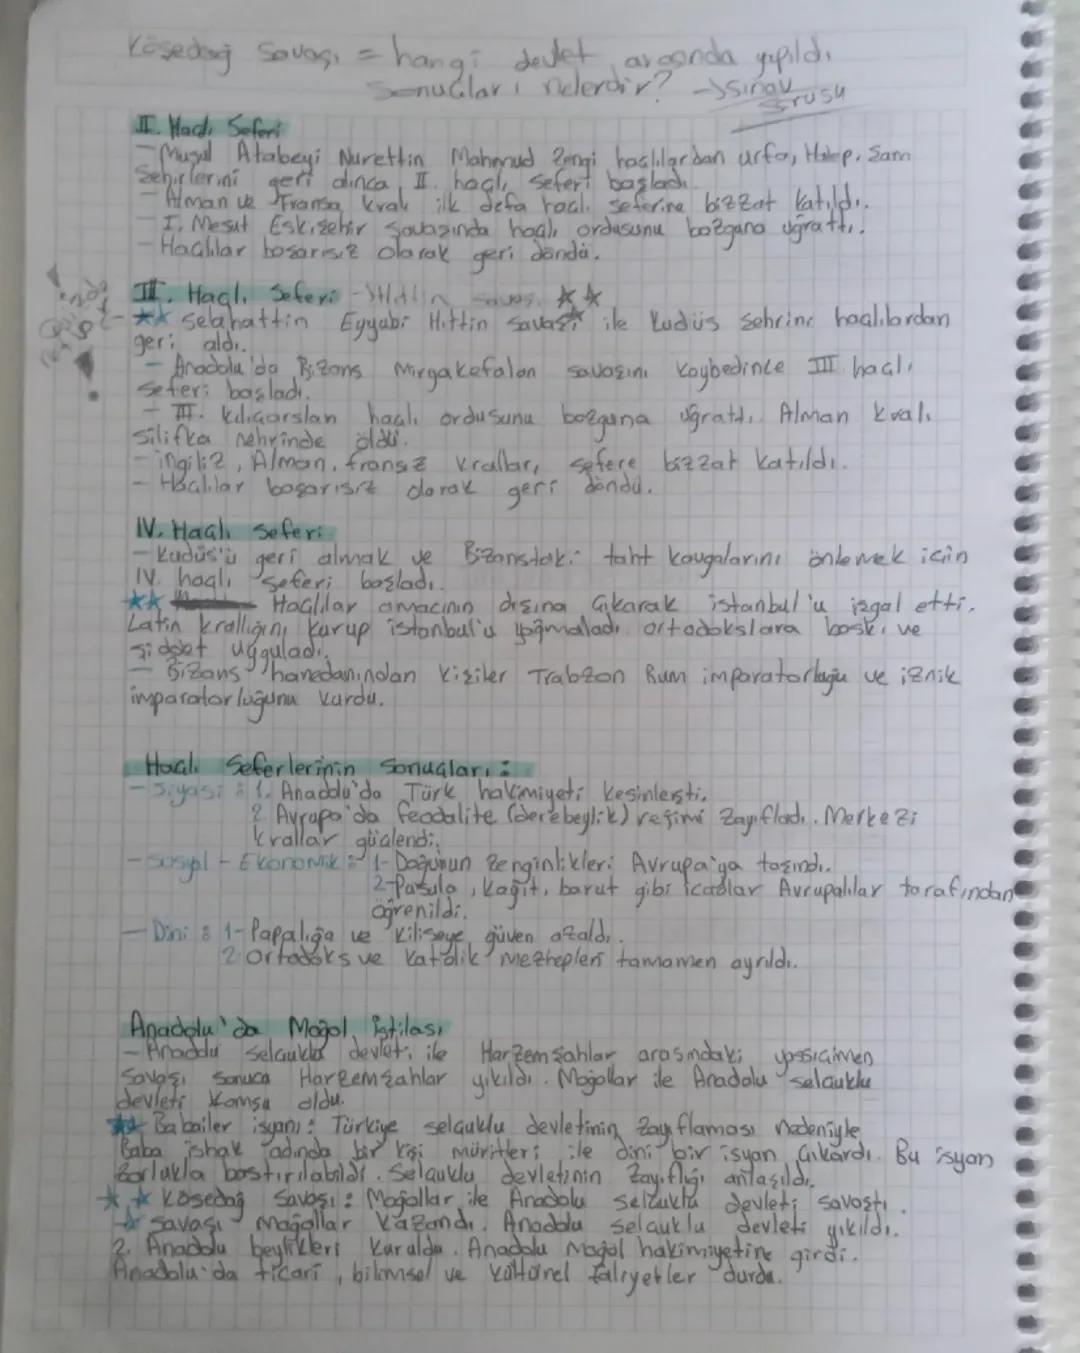 Kösedağ Savaşı = hangi devlet arasında yapıldı
Sonuçları nelerdir? → sınav
sorusu
II. Haçlı Seferi
- Musul Atabeyi Nurettin Mahmud Zengi haçlılardan urfa, Halep, Şam
Şehirlerini geri alınca, II. haçlı seferi başladı.
- Alman ve Fransa kralı ilk defa haçlı seferine bizzat katıldı.
- I. Mesut Eskişehir savaşında haçlı ordusunu bozguna uğrattı.
- Haçlılar başarısız olarak geri döndü.
III. Haçlı Seferi → Hittin savaşı ★★
★★ selahattin Eyyubi Hittin savaşı ile Kudüs şehrini haçlılardan
geri aldı.
- Anadolu'da Bizans Miryakefalon savaşını kaybedince III haçlı
seferi başladı.
- II. kılıçarslan haçlı ordusunu bozguna uğrattı. Alman kralı
Silifke nehrinde öldü.
- ingiliz, Alman, fransız kralları sefere bizzat katıldı.
- Haçlılar başarısız olarak geri döndü.
IV. Haçlı Seferi
- Kudüs'ü geri almak ve Bizanstaki taht kavgalarını önlemek için
IV. haçlı seferi başladı.
★★ Haçlılar amacının dışına çıkarak istanbul'u işgal etti.
Latin krallığını kurup istanbul'u yağmaladı ortadokslara baskı ve
şiddet uyguladı.
- Bizans hanedanından kişiler Trabzon Rum imparatorluğu ve iznik
imparatorluğunu kurdu.
Haçlı Seferlerinin Sonuçları:
- Siyasi: 1. Anadolu'da Türk hakimiyeti kesinleşti.
2. Avrupa'da feodalite (derebeylik) rejimi zayıfladı. Merkezi
krallar güçlendi.
- Sosyal - Ekonomik: 1- Doğunun zenginlikleri Avrupa'ya taşındı.
2- Pusula, kağıt, barut gibi icadlar Avrupalılar tarafından
öğrenildi.
- Dini: 1- Papalığa ve kiliseye güven azaldı.
2. Ortadoks ve Katolik mezhepleri tamamen ayrıldı.
Anadolu'da Moğol İstilası
- Anadolu selçuklu devleti ile Harzemşahlar arasındaki yassıçimen
Savaşı sonuca Harzemşahlar yıkıldı. Moğollar ile Anadolu selçuklu
devleti komşu oldu.
★★ Babailer isyanı: Türkiye selçuklu devletinin zayıflaması nedeniyle
Baba ishak adında bir kişi müritleri ile dini bir isyan çıkardı. Bu isyan
zorlukla bastırılabildi. Selçuklu devletinin zayıflığı anlaşıldı.
★★ Kösedağ Savaşı: Moğollar ile Anadolu selçuklu devleti savaştı.
★ Savaşı Moğollar kazandı. Anadolu selçuklu devleti yıkıldı.
2. Anadolu beylikleri kuruldu. Anadolu Moğol hakimiyetine girdi.
Anadolu'da ticari, bilimsel ve kültürel faliyetler durdu.